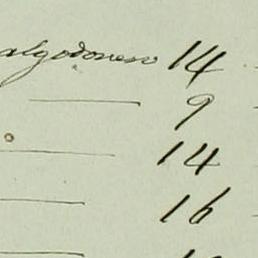 algodonero 14
9
14
16